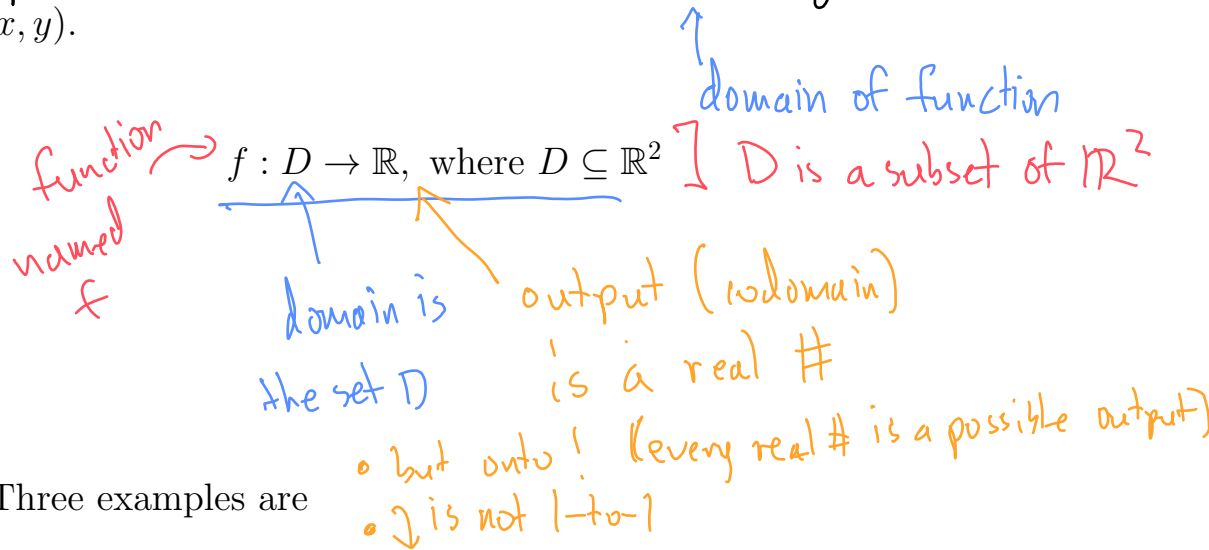 x, y).
domain of function
function
named
f
f : D → ℝ, where D ⊆ ℝ²
] D is a subset of ℝ²
domain is
the set D
output (codomain)
is a real #
• but onto! (every real # is a possible output)
• is not 1-to-1
Three examples are